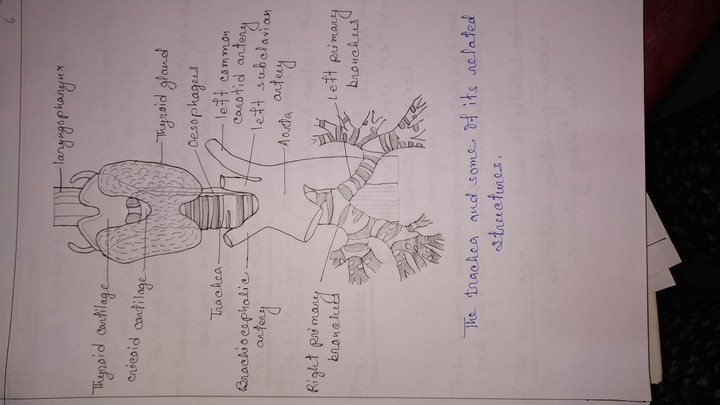 6
laryngopharynx
Thyroid gland
Oesophagus
left common
carotid artery
left subclavian
artery
Aorta
Left primary
bronchus
Thyroid cartilage
cricoid cartilage
Trachea
Brachiocephalic
artery
Right primary
bronchus
The trachea and some of its related
structures.